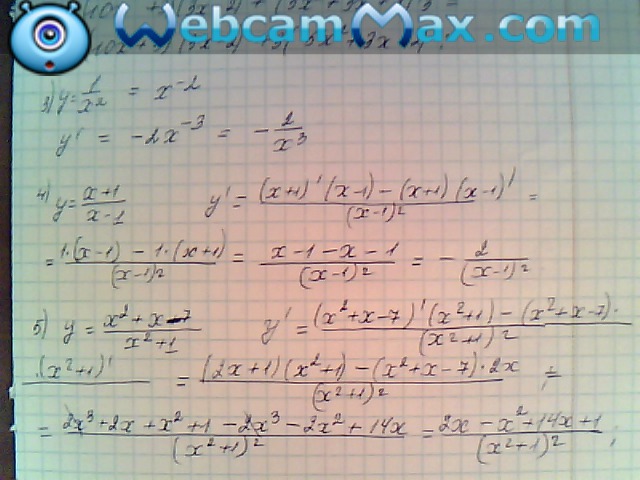 WebcamMax.com
3) y = 1/x² = x⁻²
y' = -2x⁻³ = - 2/x³
4) y = (x+1)/(x-1) y' = ((x+1)'(x-1) - (x+1)(x-1)')/(x-1)² =
= (1·(x-1) - 1·(x+1))/(x-1)² = (x-1-x-1)/(x-1)² = - 2/(x-1)²
5) y = (x²+x-7)/(x²+1) y' = ((x²+x-7)'(x²+1) - (x²+x-7)·/(x²+1)²
·(x²+1)' = ((2x+1)(x²+1) - (x²+x-7)·2x)/(x²+1)² =
= (2x³+2x+x²+1-2x³-2x²+14x)/(x²+1)² = (2x-x²+14x+1)/(x²+1)²;